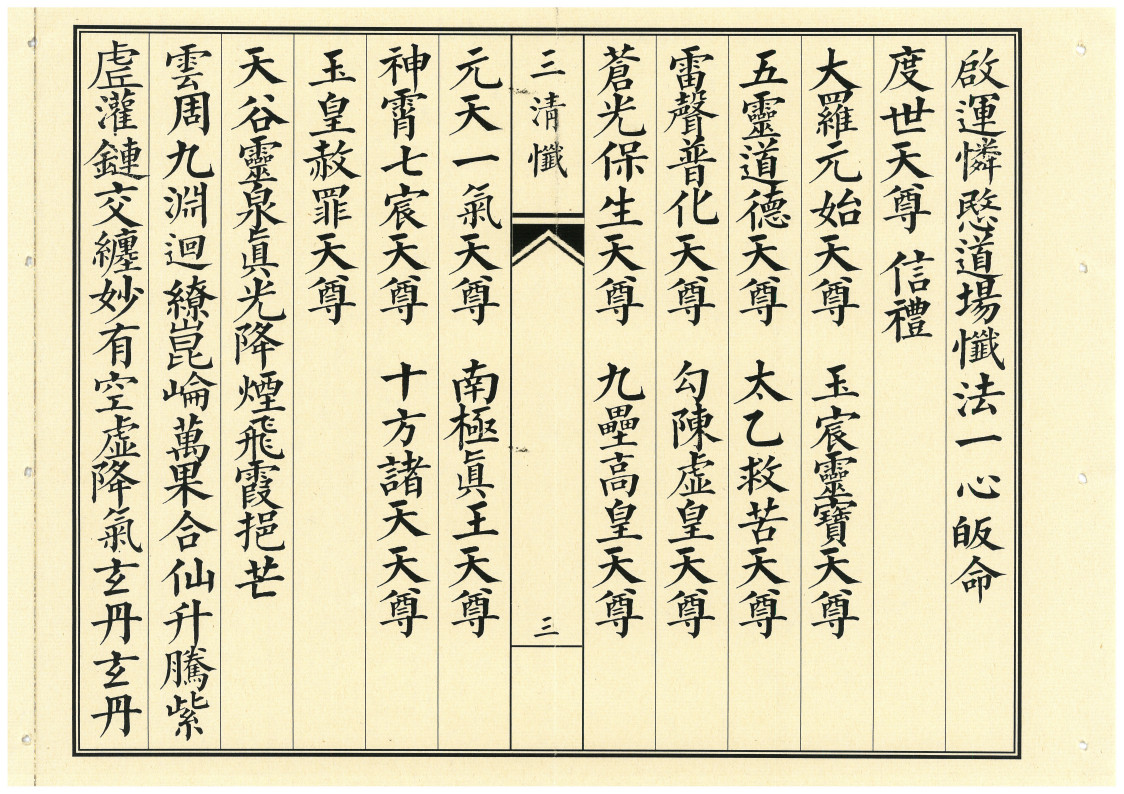 啟運憐愍道場懺法一心皈命
度世天尊 信禮
大羅元始天尊 玉宸靈寶天尊
五靈道德天尊 太乙救苦天尊
雷聲普化天尊 勾陳虛皇天尊
蒼光保生天尊 九壘高皇天尊
三清懺 三
元天一氣天尊 南極眞王天尊
神霄七宸天尊 十方諸天天尊
玉皇赦罪天尊
天谷靈泉眞光降煙飛霞挹芒
雲周九淵迴繚崑崘萬果合仙升騰紫
虛灌鏈交纏妙有空虛降氣玄丹玄丹